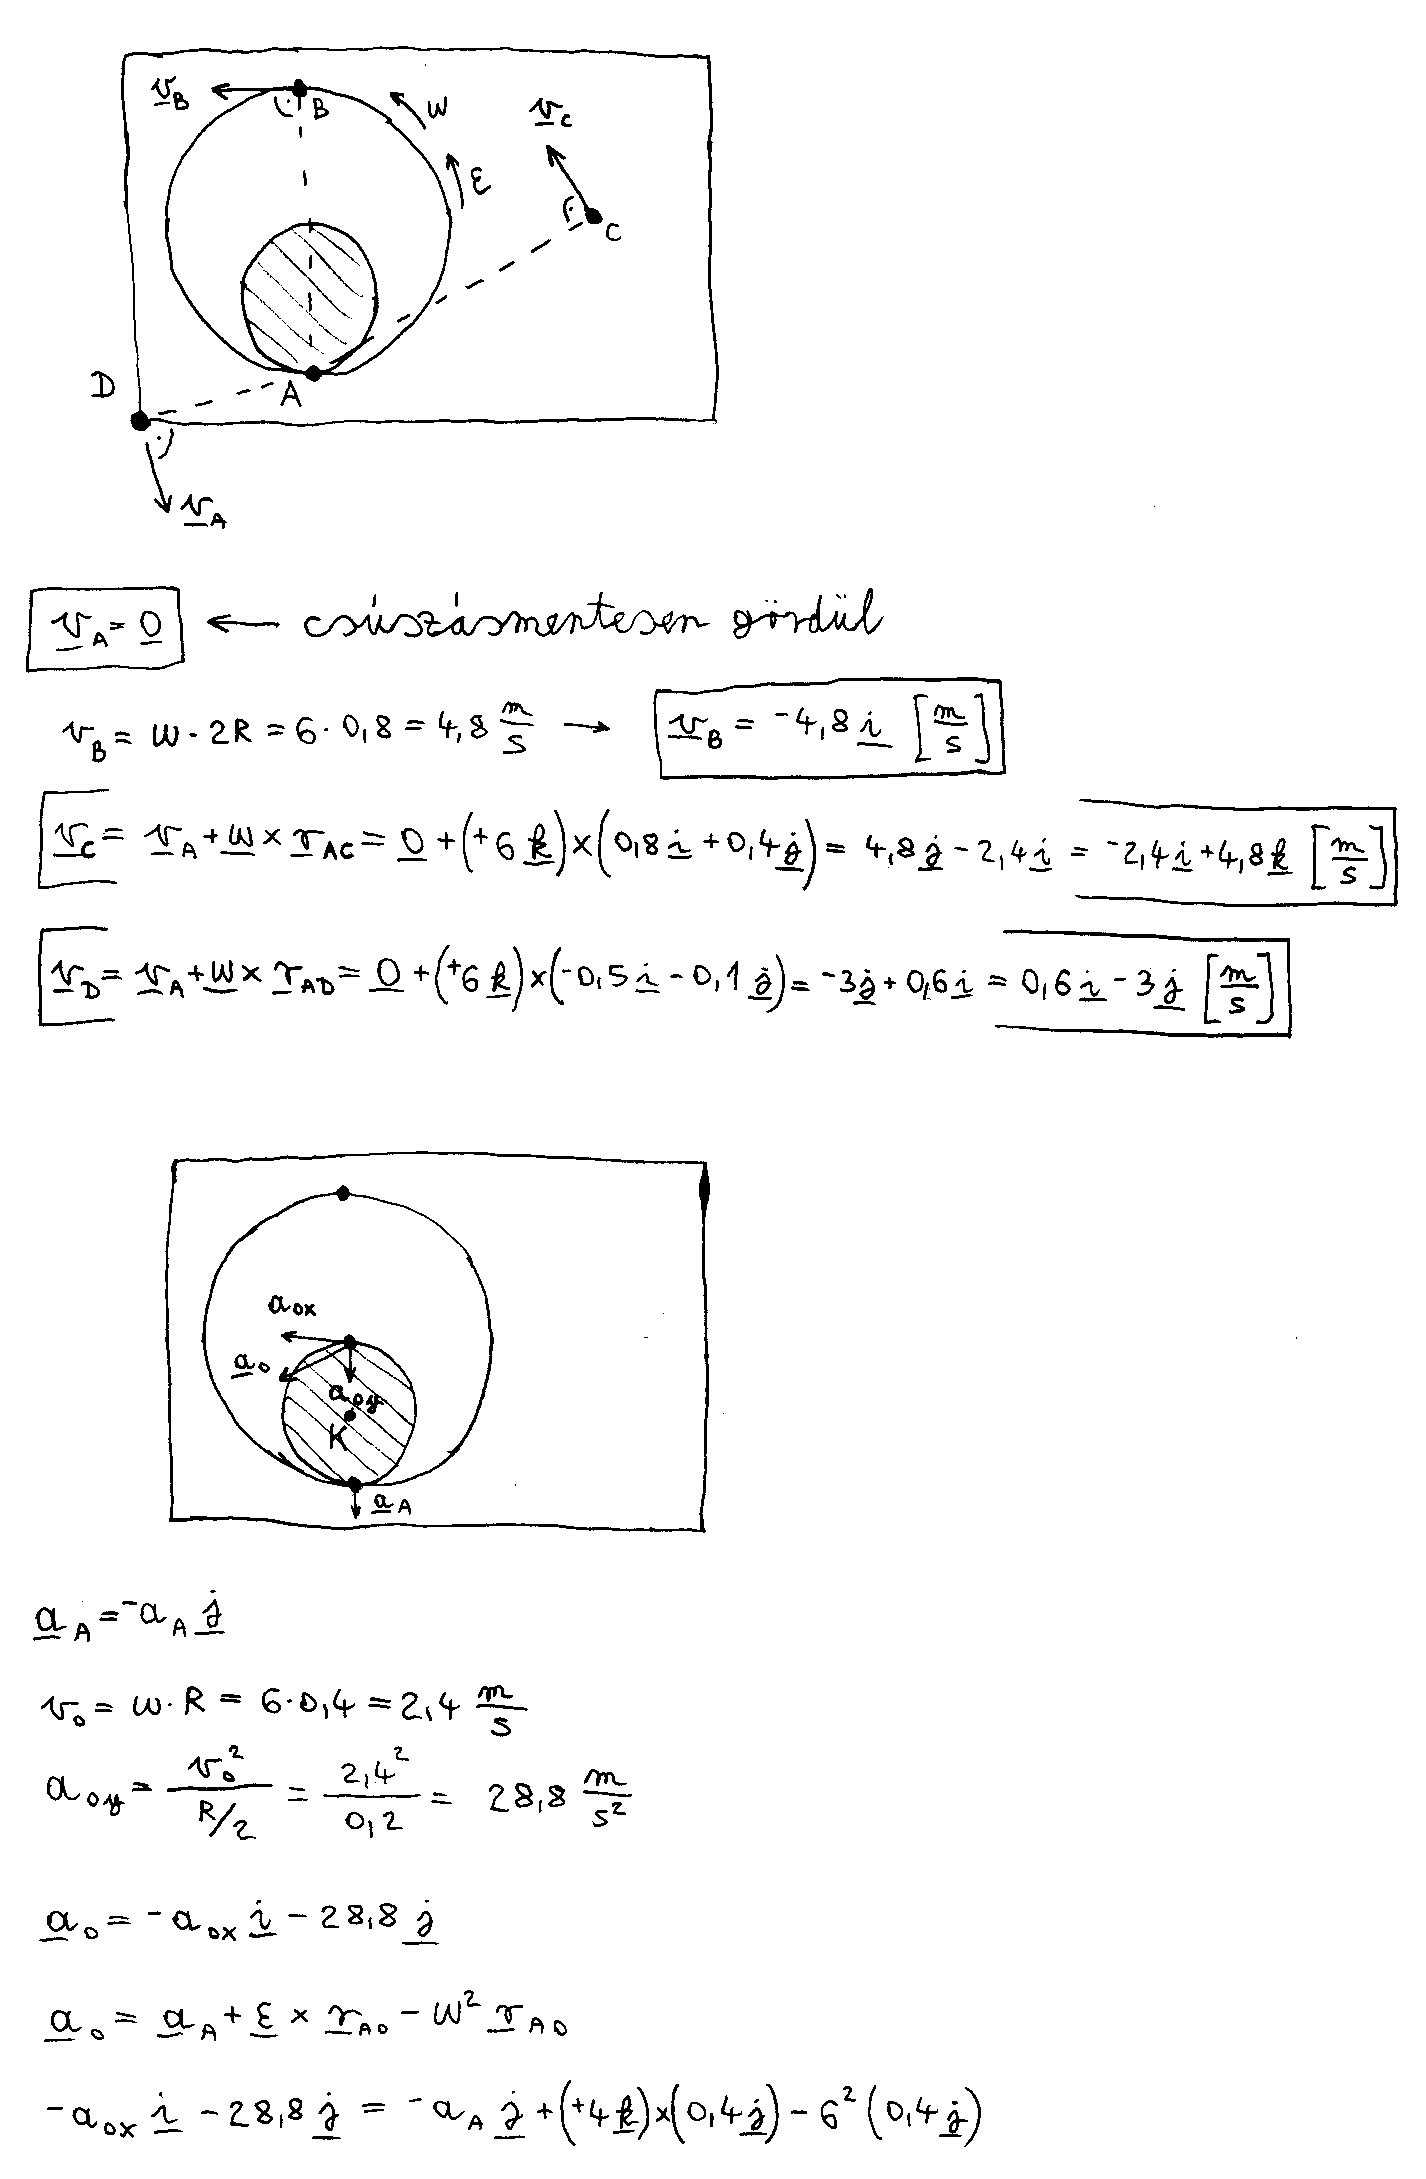 v_B B ω v_C
ε
C
D A
v_A
v_A = 0 ← csúszásmentesen gördül
v_B = ω · 2R = 6 · 0,8 = 4,8 m/s → v_B = -4,8 i [m/s]
v_C = v_A + ω × r_AC = 0 + (+6 k) × (0,8 i + 0,4 j) = 4,8 j - 2,4 i = -2,4 i + 4,8 k [m/s]
v_D = v_A + ω × r_AD = 0 + (+6 k) × (-0,5 i - 0,1 j) = -3 j + 0,6 i = 0,6 i - 3 j [m/s]
a_0x
a_0
a_0y
K
a_A
a_A = -a_A j
v_0 = ω · R = 6 · 0,4 = 2,4 m/s
a_0y = v_0² / (R/2) = 2,4² / 0,2 = 28,8 m/s²
a_0 = -a_0x i - 28,8 j
a_0 = a_A + ε × r_A0 - ω² r_A0
-a_0x i - 28,8 j = -a_A j + (+4 k) × (0,4 j) - 6² (0,4 j)